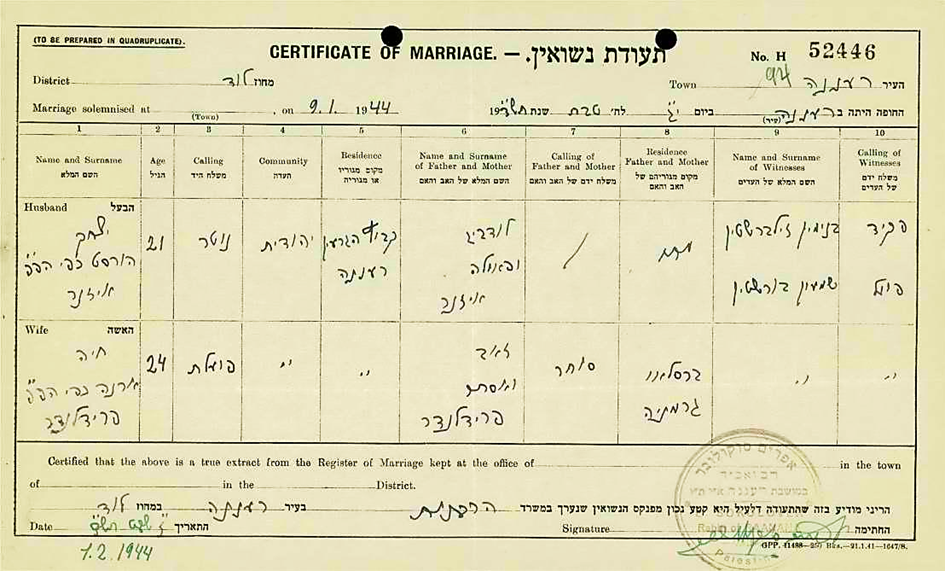 (TO BE PREPARED IN QUADRUPLICATE).
CERTIFICATE OF MARRIAGE. — תעודת נשואין.
No. H 52446
District לוד מחוז Town 94 רעננה העיר
Marriage solemnised at (Town) on 9.1.1944 החופה היתה ב רעננה (עיר) ביום י"ג לח' טבת שנת תש"ד
1 2 3 4 5 6 7 8 9 10
Name and Surname Age Calling Community Residence Name and Surname of Father and Mother Calling of Father and Mother Residence Father and Mother Name and Surname of Witnesses Calling of Witnesses
השם המלא הגיל משלח היד העדה מקום מגוריו או מגוריה השם המלא של האב והאם משלח ידם של האב והאם מקום מגוריהם של האב והאם השם המלא של העדים משלח ידם של העדים
Husband הבעל
יצחק הורסט כפי הפ"פ אייזנר
21 נוטר יהודית קבוץ רעננה
לודביג ופאולה אייזנר
/
בנימין זילברשטין פקיד
שמעון בורשטין פועל
Wife האשה
חיה כפי הפ"פ פרידלנדר
24 פועלת " "
זאב ואסתר פרידלנדר
סוחר ברסלאו גרמניה " "
Certified that the above is a true extract from the Register of Marriage kept at the office of in the town
of in the District.
הריני מודיע בזה שהתעודה דלעיל היא קטע נכון מפנקס הנשואין שנערך במשרד הרבנות בעיר רעננה במחוז לוד
Date התאריך Signature החתימה
1.2.1944
אפרים סוקוליבר
רב ואב״ד
במושבת רעננה
Palestine
GPP. 11488—250 Bks.—21.1.41—1647/8.